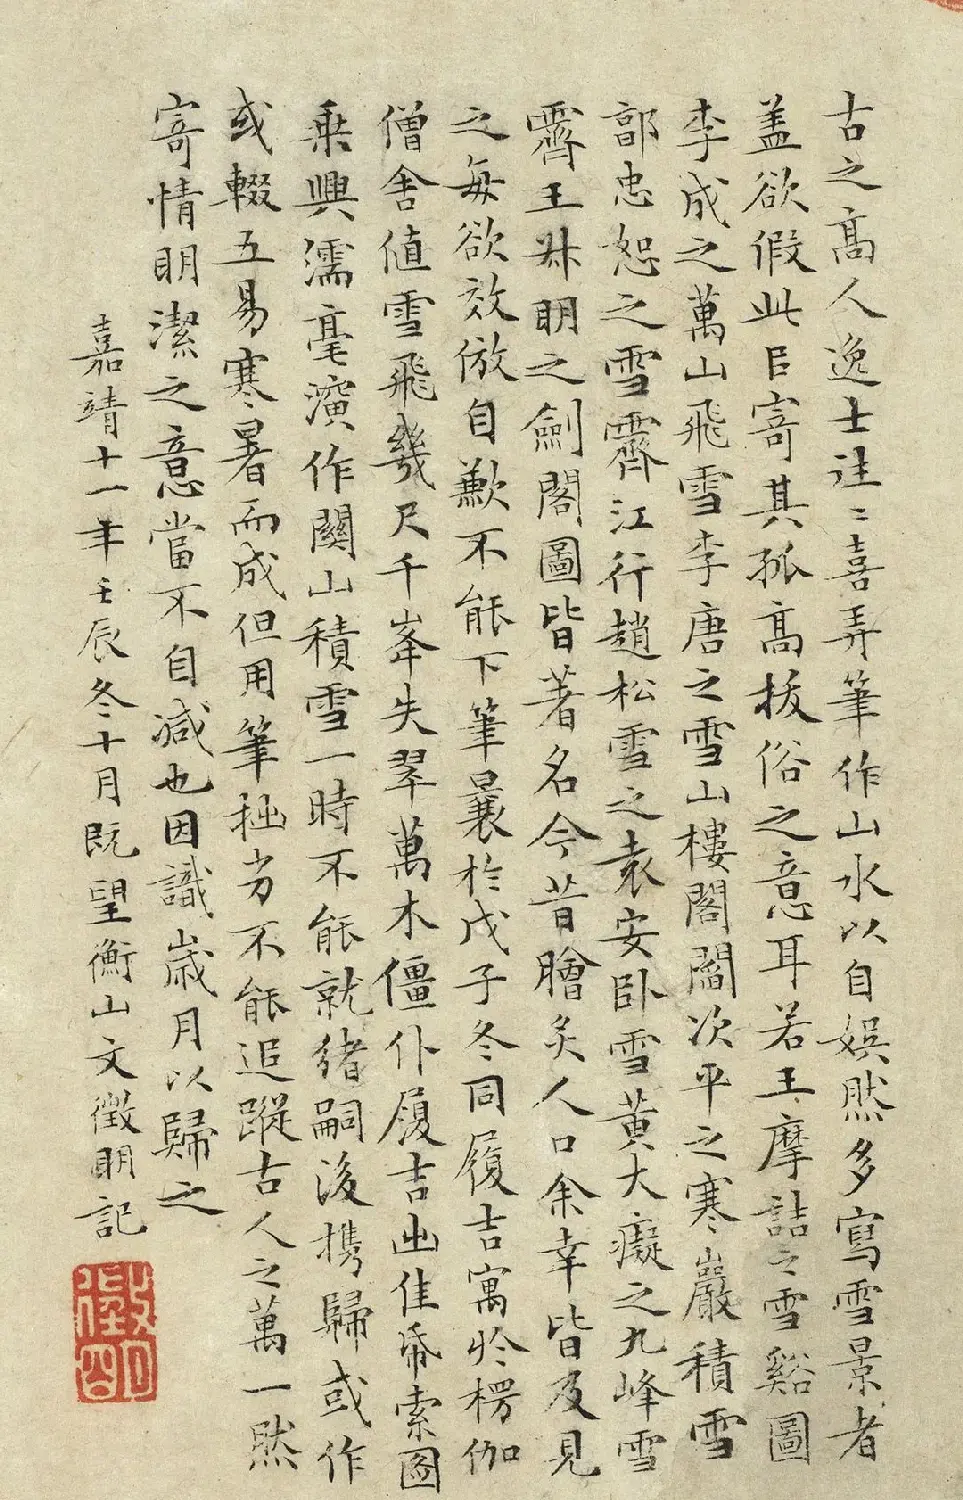 古之高人逸士往〻喜弄筆作山水以自娛然多寫雪景者
盖欲假此㠯寄其孤高拔俗之意耳若王摩詰之雪谿圖
李成之萬山飛雪李唐之雪山樓閣閻次平之寒巖積雪
郭忠恕之雪霽江行趙松雪之袁安臥雪黃大癡之九峰雪
霽王叔明之劍閣圖皆著名今昔膾炙人口余幸皆及見
之每欲效倣自歉不能下筆曩於戊子冬同履吉寓於楞伽
僧舍值雪飛幾尺千峯失翠萬木僵仆履吉出佳帋索圖
乘興濡毫演作關山積雪一時不能就緒嗣後携歸或作
或輟五易寒暑而成但用筆拙劣不能追蹤古人之萬一然
寄情明潔之意當不自減也因識歲月以歸之
嘉靖十一年壬辰冬十月既望衡山文徵明記
徵明